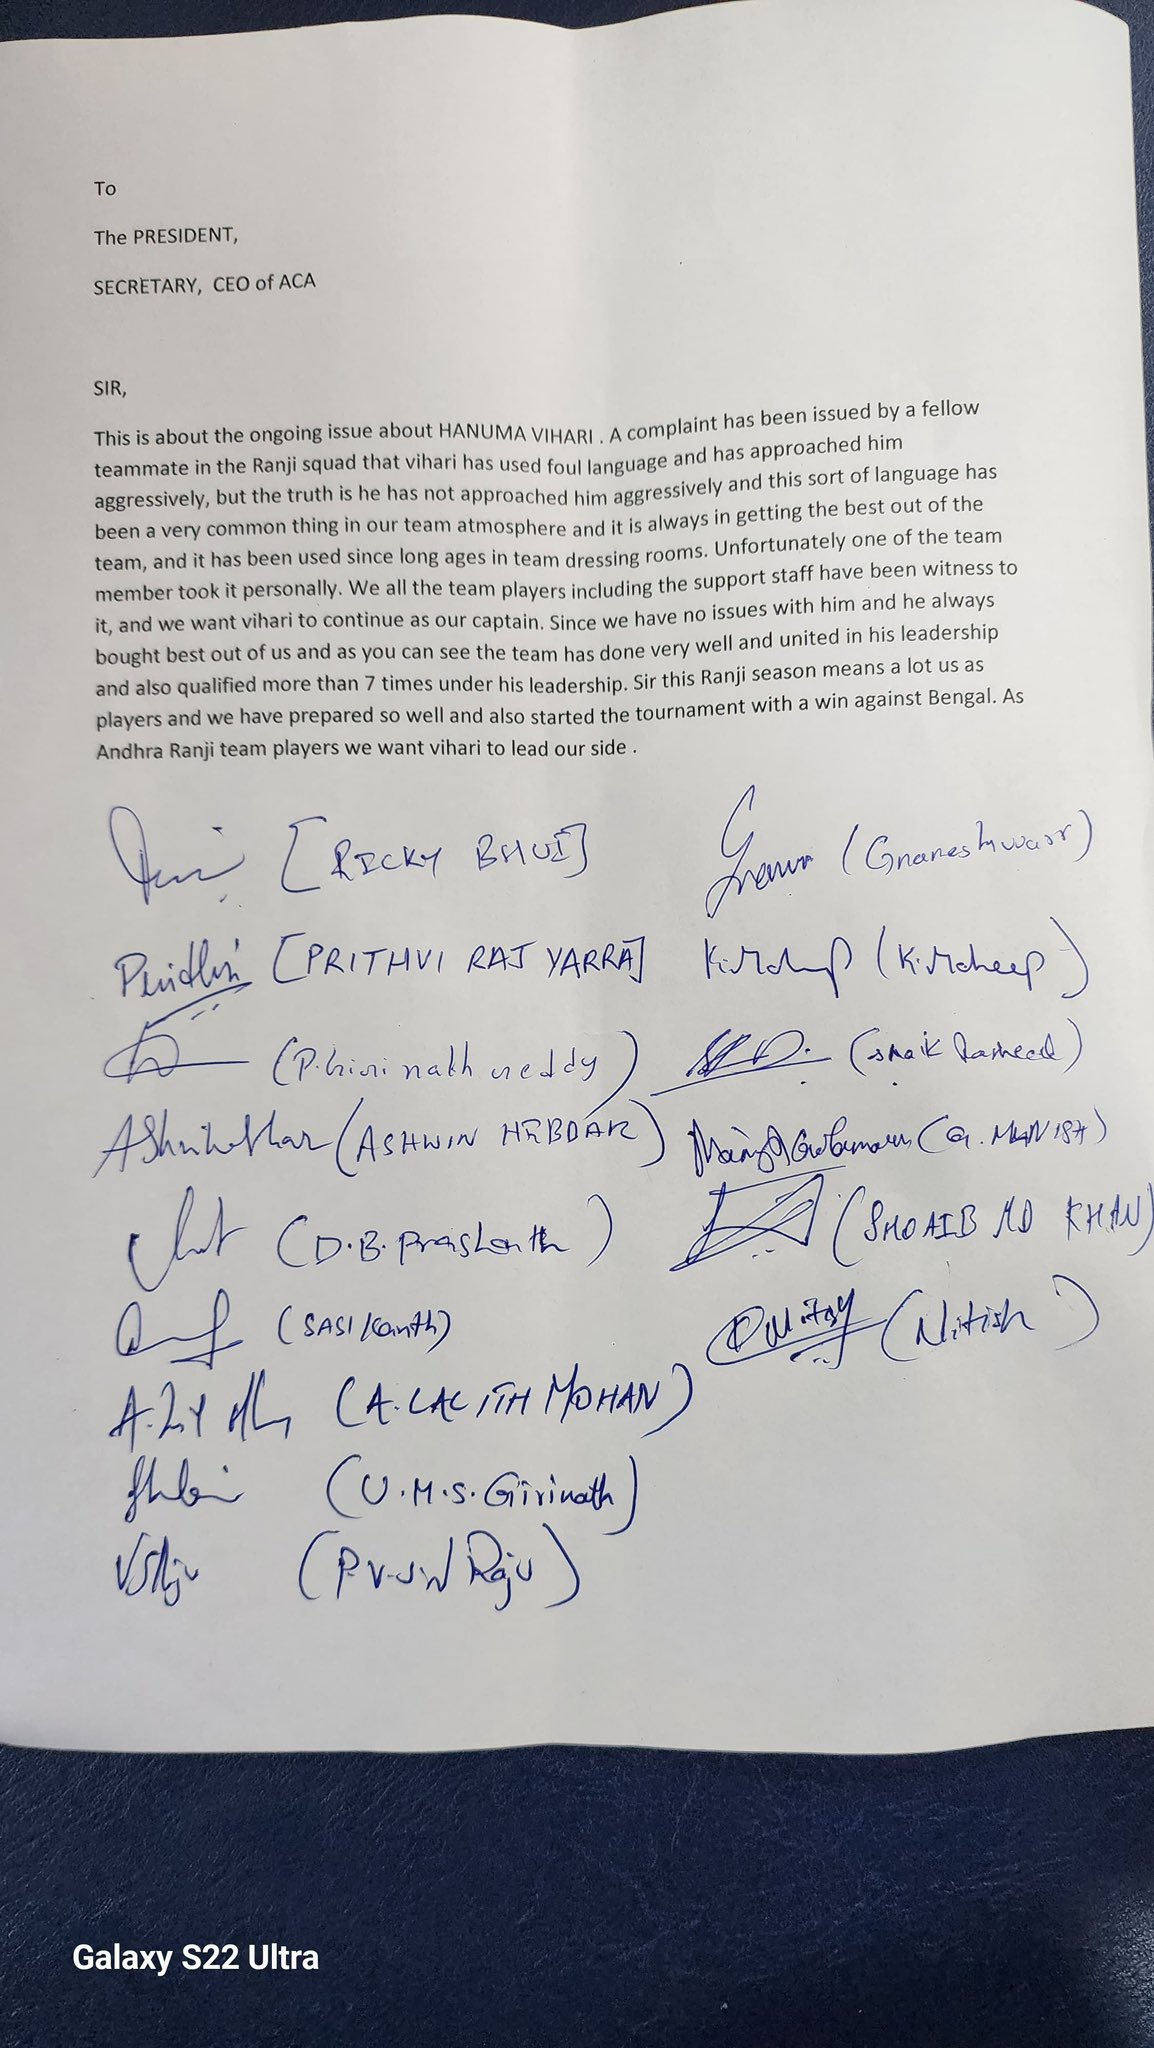 To
The PRESIDENT,
SECRETARY, CEO of ACA
SIR,
This is about the ongoing issue about HANUMA VIHARI . A complaint has been issued by a fellow
teammate in the Ranji squad that vihari has used foul language and has approached him
aggressively, but the truth is he has not approached him aggressively and this sort of language has
been a very common thing in our team atmosphere and it is always in getting the best out of the
team, and it has been used since long ages in team dressing rooms. Unfortunately one of the team
member took it personally. We all the team players including the support staff have been witness to
it, and we want vihari to continue as our captain. Since we have no issues with him and he always
bought best out of us and as you can see the team has done very well and united in his leadership
and also qualified more than 7 times under his leadership. Sir this Ranji season means a lot us as
players and we have prepared so well and also started the tournament with a win against Bengal. As
Andhra Ranji team players we want vihari to lead our side .
[RICKY BHUI] (Gnaneshwarr)
[PRITHVI RAJ YARRA]
reddy)
(ASHWIN HEBBAR)
(D.B. Prashanth) (SHOAIB MD KHAN)
(SASI Kanth) (Nitish)
(A. LALITH MOHAN)
(U.M.S. Girinath)
Raju)
Galaxy S22 Ultra